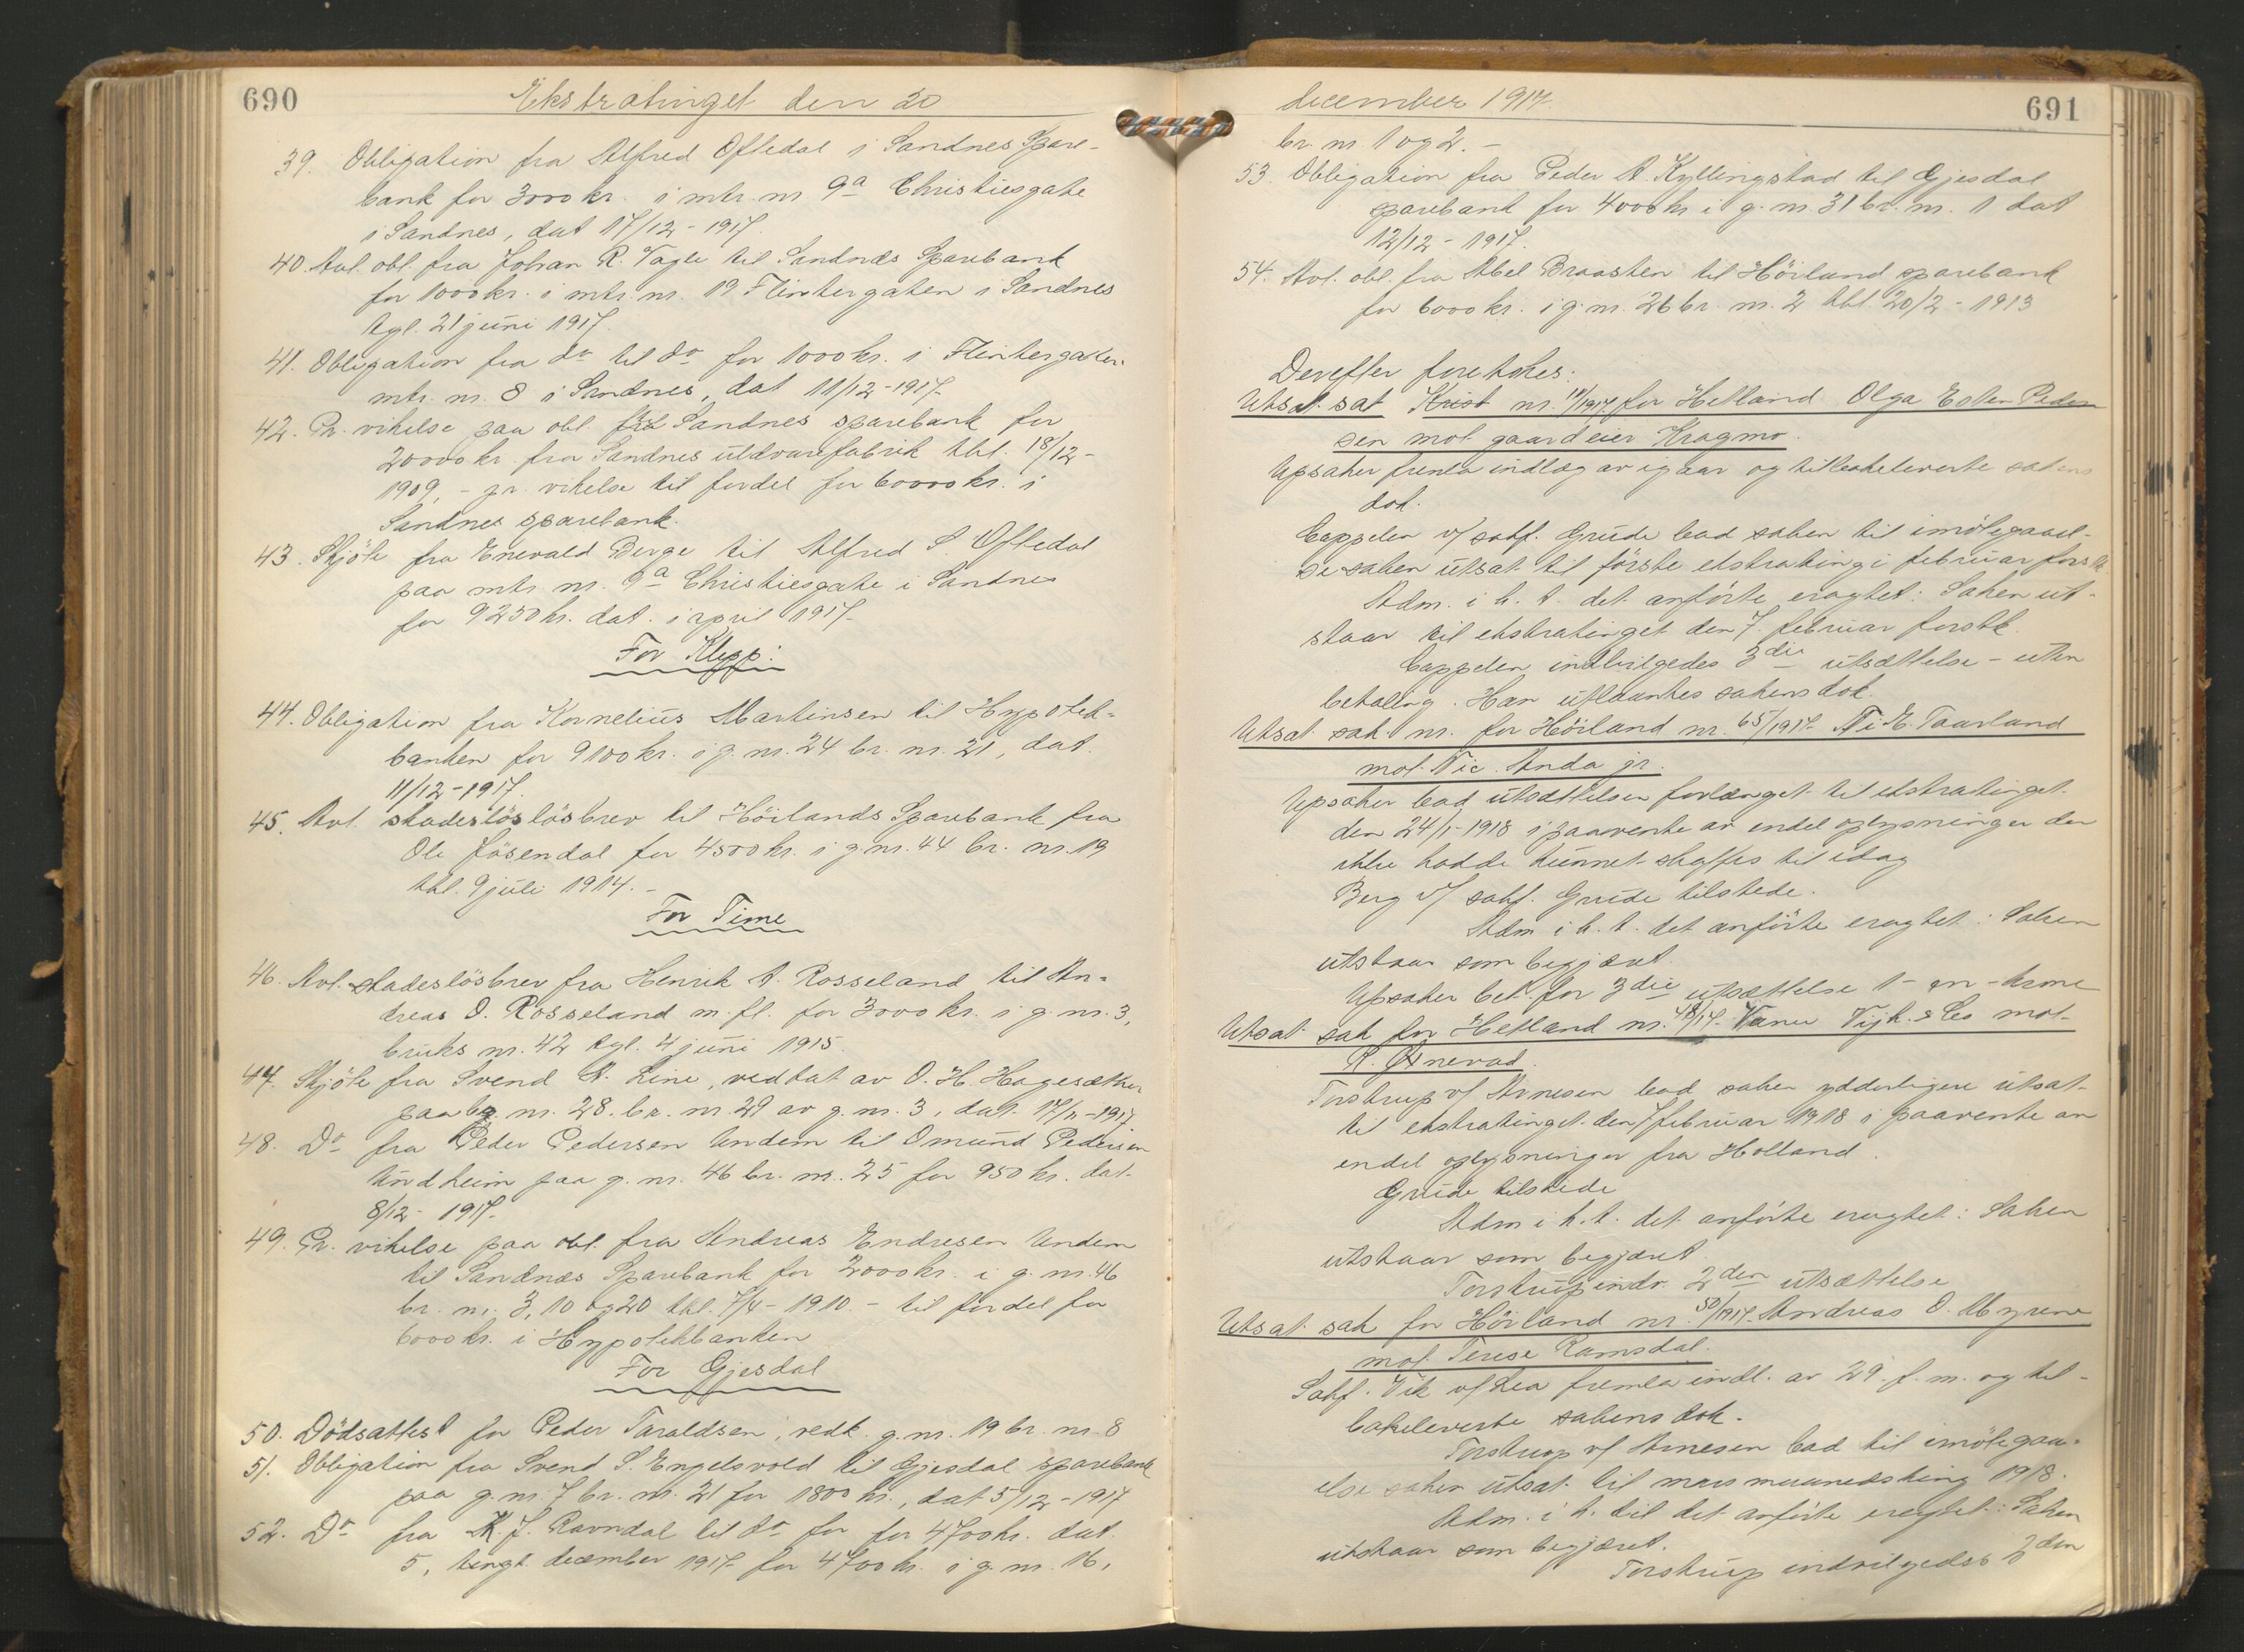 690
Ekstratinget den 20
39. Obligation fra Alfred Oftedal i Sandnes Spare-
bank for 3000 kr. i mtr. nr 9a Christiesgate
i Sandnes, dat 17/12-1917.
40. Avl. obl. fra Johan R. Vagle til Sandnæs Sparebank
for 1000 kr. i mtr. nr. 19 Flintergaten i Sandnes
tgl. 21 juni 1917.
41. Obligation fra do til do for 1000 kr. i Flintergaten
mtr. nr. 8 i Sandnes, dat 11/12-1917-
42. Pr. vikelse paa obl. til Sandnes sparebank for
20000 kr. fra Sandnes uldvarefabrik tbl. 18/12-
1909, - pr. vikelse til fordel for 60000 kr. i
Sandnes sparebank.
43. Skjöte fra Enevald Berge til Alfred S. Oftedal
paa mtr nr. 9a Christiesgate i Sandnes
for 9250 kr. dat. i april 1917-
For Klepp:
44. Obligation fra Kornelius Martinsen til Hypotek-
banken for 9100 kr. i g. nr. 24 br. nr. 21, dat.
11/12-1917.
45. Avl. skadeslöslösbrev til Höilands Sparebank fra
Ole Jösendal for 4500 kr. i g. nr. 44 br. nr. 19
tbl. 9 juli 1914. -
For Time
46. Avl. skadeslösbrev fra Henrik A. Rosseland til An-
dreas O. Rosseland m. fl. for 3000 kr. i g. nr. 3,
bruks nr. 42 tgl. 4 juni 1915.
47. Skjöte fra Svend A. Line, vedtat av O. H.
paa nr. 28. br. nr. 29 av g. nr. 3, dat. 17/11-1917
48. Do fra Peder Pedersen Undem til Omund Pedersen
Undheim paa g. nr. 46 br. nr. 25 for 950 kr. dat.
8/12- 1917-
49. Pr. vikelse paa obl. fra Andreas Endresen Undem
til Sandnæs Sparebank for 2000 kr. i g. nr. 46
br. nr. 3, 10 og 20 tbl. 7/4-1910. - til fordel for
6000 kr. i Hypotekbanken
For Gjesdal
50. Dödsattest for Peder Taraldsen, vedk. g. nr. 19 br. nr. 8
51. Obligation fra Svend S. Engelsvold til Gjesdal sparebank
paa g. nr. 7 br. nr. 21 for 1800 kr., dat 5/12-1917
52. Do fra J. Ravndal til do for for 4700 kr. dat.
5, tingl. december 1917 for 4700 kr. i g. nr. 16,
december 1917.
691
br. nr. 1 og 2. -
53. Obligation fra Peder A. Kyllingstad til Gjesdal
sparebank for 4000 kr i g. nr. 31 br. nr. 1 dat
12/12- 1917.
54. Avl. obl. fra Abel Braasten til Höiland sparebank
for 6000 kr. i g. nr. 26 br. nr. 2 tbl. 20/2-1913
Derefter foretokes:
Utsat sak nr. 11/1917 for Hetland Olga Peder
sen mot gaardeier Kragmo.
Upsaker fremla indlæg av igaar og tilbakeleverte sakens
dok.
Cappelen v/ sakf. Grude bad saken til imötegaael-
se saken utsat til förste ekstrating i februar förstk
Adm. i h. t. det anförte eragtet: Saken ut-
staar til ekstratinget den 7. februar forstk.
Cappelen indvilgedes 3die utsættelse - uten
betaling. Han utlaantes sakens dok.
Utsat sak nr. for Höiland nr. 65/1917- E. Taarland
mot Nic. Anda jr.
Upsaker bad utsættelsen forlænget til ekstratinget
den 24/1-1918 i paavente av endel oplysninger der
ikke hadde kunnet skaffes til idag
Berg v/ sakf. Grude tilstede.
Adm i h. t. det anförte eragtet: Saken
utstaar som begjæret.
Upsaker bet. for 3die utsættelse 1- en - krone
Utsat sak for Hetland nr. 48/17- & Co mot
R.
Torstrup v/ Arnesen bad saken ydderligere utsat
til ekstratinget den 7 februar 1918 i paavente av
endel oplysninger fra Holland.
Grude tilstede
Adm i h. t. det anförte eragtet: Saken
utstaar som begjæret.
Torstrup indv. 2den utsættelse
Utsat sak for Höiland nr. 50/1917. Andreas O. Myrene
mot Terese Ramsdal.
Sakf. Vik v/ Lea fremla indl. av 29. f. m. og til-
bakeleverte sakens dok.
Torstrup v/ Arnesen bad til imötegaa-
else saken utsat til mars maanedsting 1918.
Adm. i h. til det anförte eragtet: Saken
utstaar som begjæret.
Torstrup indvilgedes 2den